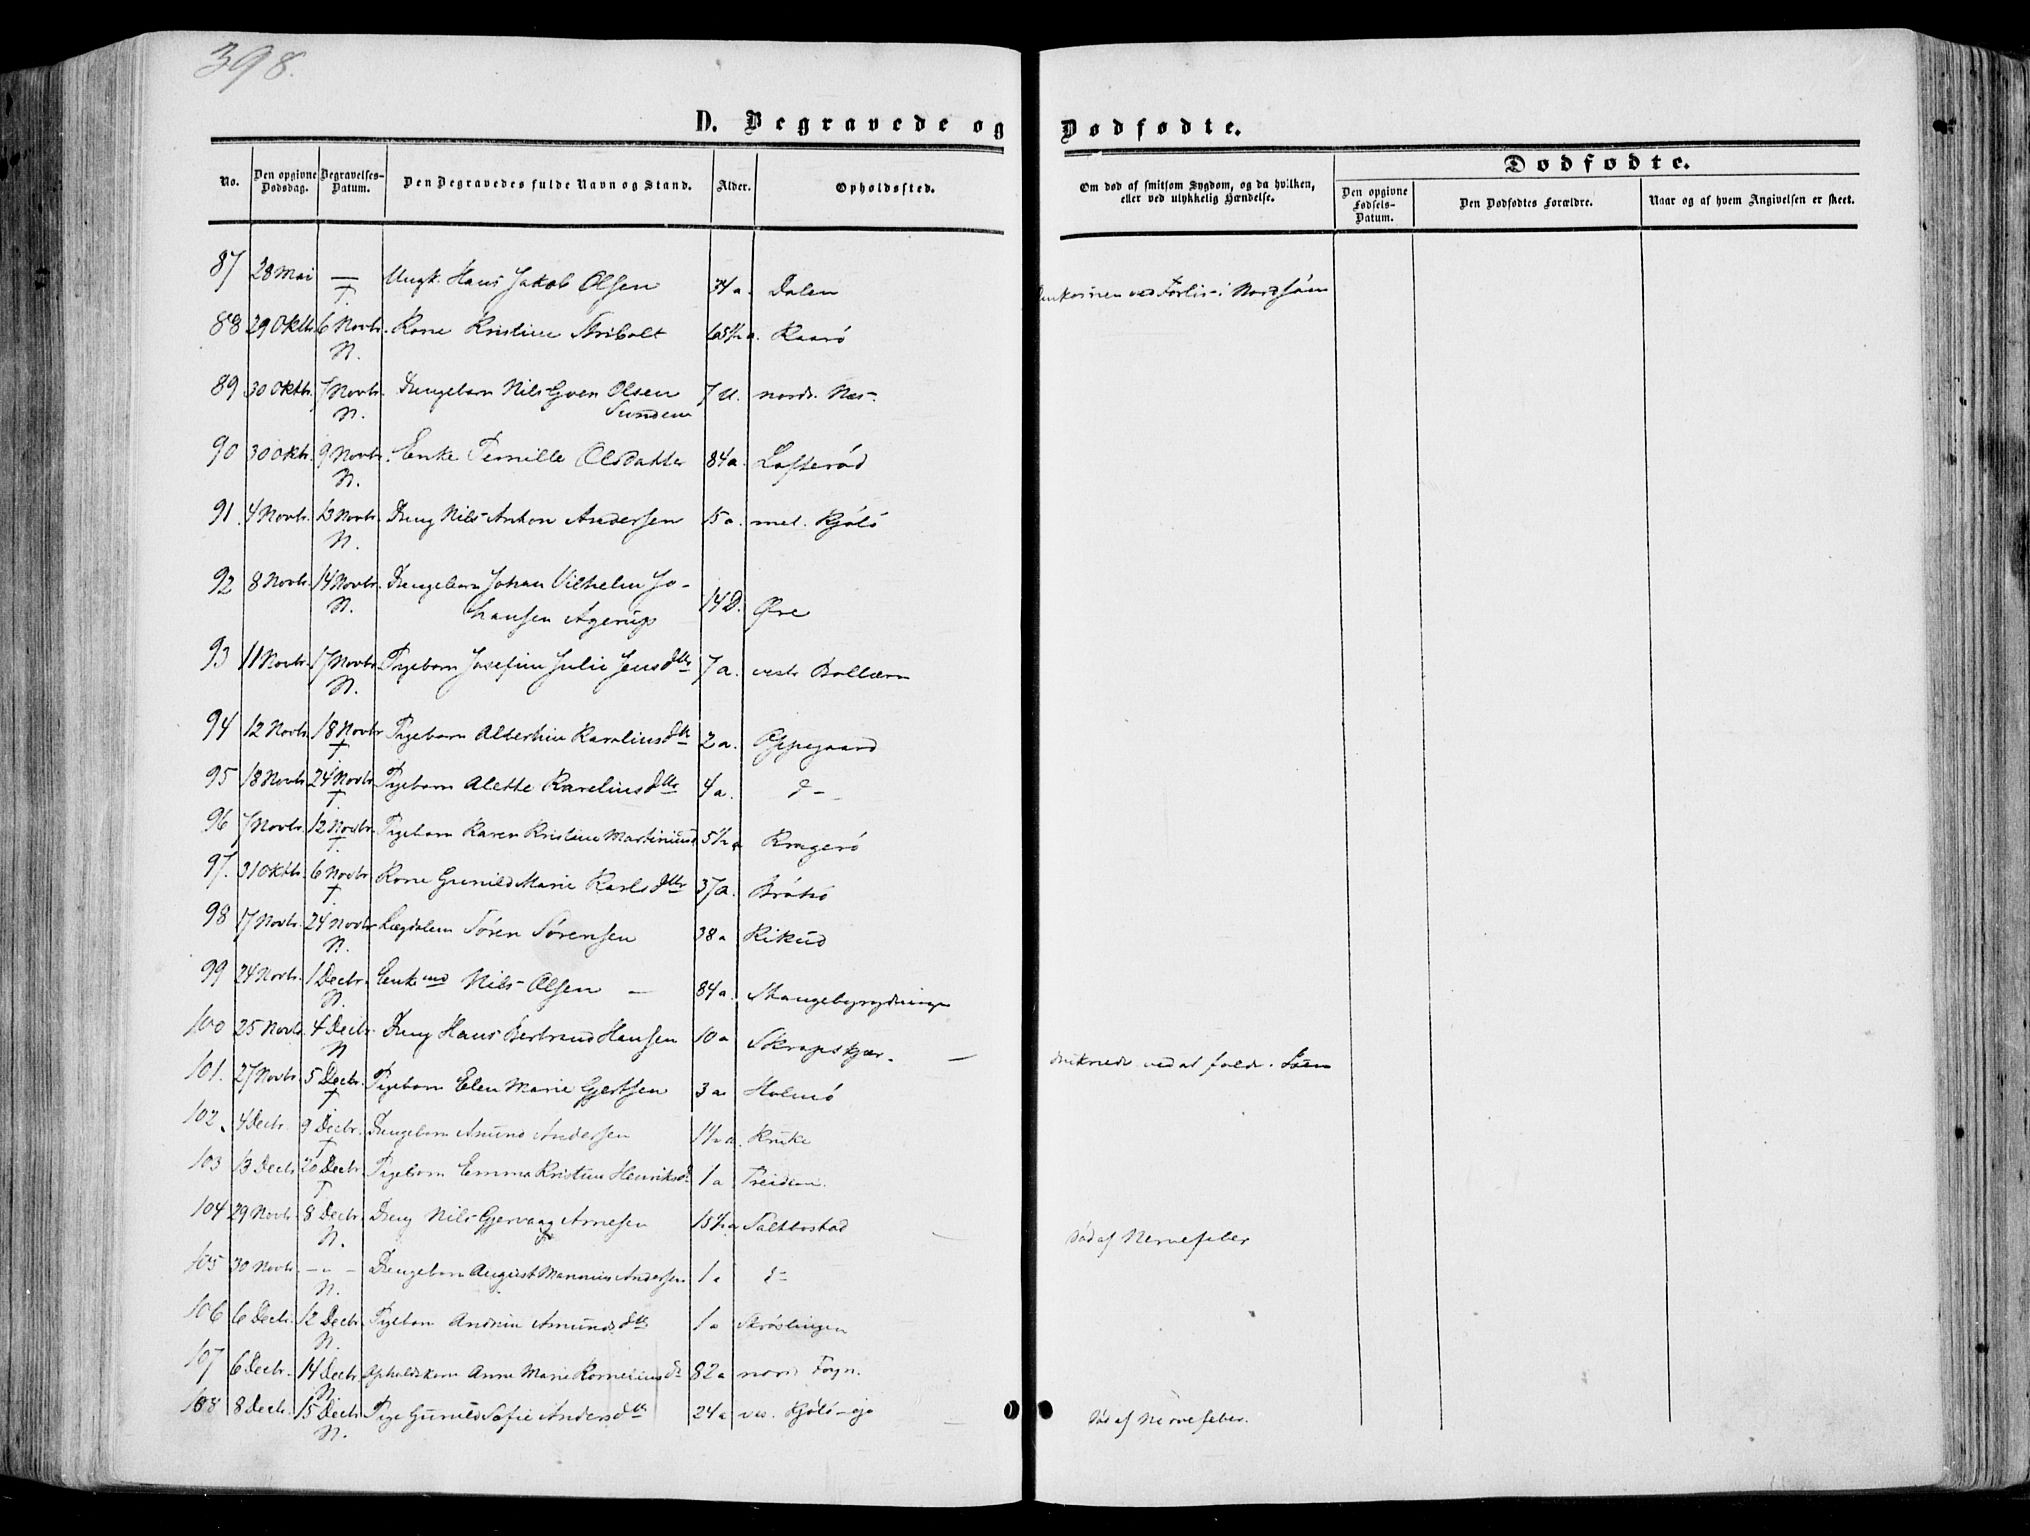 398.
D. Begravede og Dødfødte.
No. Den opgivne Dødsdag. Begravelses-Datum. Den Begravedes fulde Navn og Stand. Alder. Opholdssted. Om død af smitsom Sygdom, og da hvilken, eller ved ulykkelig Hændelse.
Dødfødte.
Den opgivne Fødsels-Datum. Den Dødfødtes Forældre. Naar og af hvem Angivelsen er skeet.
87 28 Mai — Ungk. Hans Jakob Olsen 34 a. Dalen omkommen ved Forlis i Nordsøen
†
88 29 Oktb. 6 Novbr. Kone Kristine 65½ a. Kaarø
N.
89 30 Oktb. 7 Novbr. Drengebarn Nils Olsen 7 U. nordr. Næs.
N. Sundene
90 30 Oktb. 9 Novbr. Enke Pernille Olsdatter 84 a. Lofterød
N.
91. 4 Novbr. 13 Novbr. Dreng Nils Anton Andersen 15 a. mel. Kjølø
N.
92 8 Novbr. 14 Novbr. Drengebarn Johan Vilhelm Jo-
N. hansen Agerup 14 D. Øre
93 11 Novbr. 17 Novbr. Pigebarn Josefine Julie Jensdtr 7 a. vestr Bollærn
N.
94 12 Novbr. 18 Novbr Pigebarn Albertine Karoliusdtr 2 a. Oppegaard
†
95 18 Novbr 24 Novbr. Pigebarn Alette Kareliusdtr 4 a. d-
†
96 7 Novbr. 12 Novbr. Pigebarn Karen Kristine Martiniusd 5½ a Kragerø
†
97. 31 Oktb. 6 Novbr Kone Gunild Marie Karlsdtr 37 a. Brøtsø
†
98 17 Novbr. 24 Novbr Lægdslem Søren Sørensen 38 a Kikud
N.
99 24 Novbr. 1 Decbr. Enkemd Nils Olsen — 84 a.
N.
100 25 Novbr. 4 Decbr. Dreng Hans Bertrand Hansen 10 a Skrapskjær. —
N
101. 27 Novbr. 5 Decbr. Pigebarn Elen Marie Gjertsen 3 a Holmø druknede ved at falde i Søen
†
102. 4 Decbr. 9 Decbr. Drengebarn Amund Andersen 1½ a. Kruke
†
103 13 Decbr. 20 Decbr Pigebarn Emma Kristine Henriksd 1 a Treidene.
†
104 29 Novbr. 8 Decbr. Dreng Nils Gjervaag Arnesen 15½ a Saltbostad død af Nervefeber
N.
105 30 Novbr. - " - Drengebarn August Andersen 1 a d-
N.
106 6 Decbr. 12 Decbr. Pigebarn Andrine Amundsdtr 1 a
N.
107 6 Decbr. 14 Decbr Opholdskone Anne Marie Korneliusd. 82 a nord. Føyn.
N.
108 8 Decbr. 15 Decbr Pige Gunild Sofie Andersdtr 24 a ves. Kjølø- død af Nervefeber.
N.